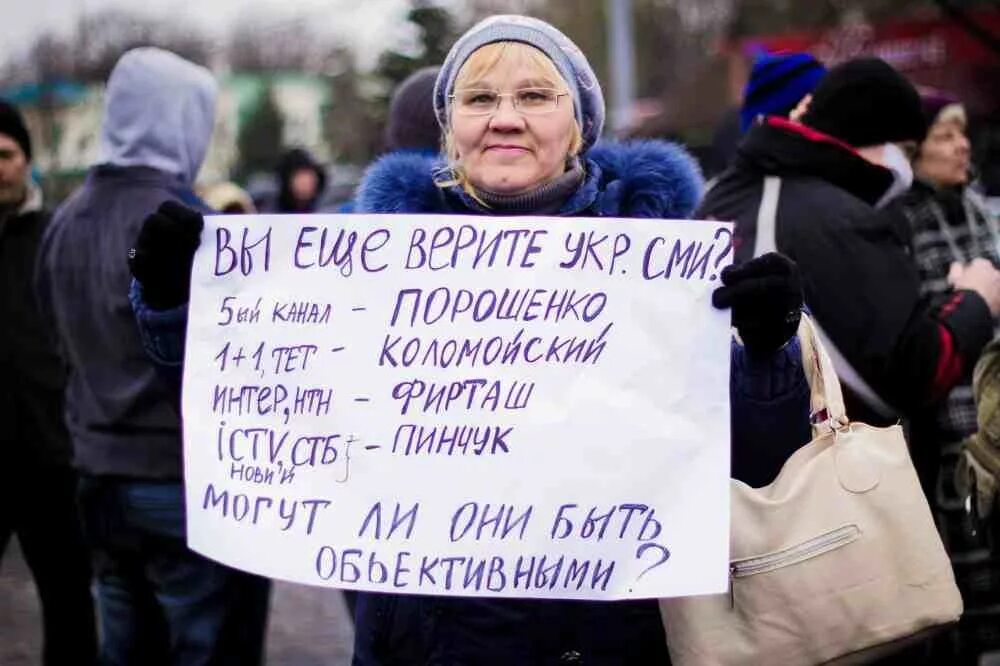 ВЫ ЕЩЕ ВЕРИТЕ УКР. СМИ?
5ый КАНАЛ – ПОРОШЕНКО
1+1, ТЕТ – КОЛОМОЙСКИЙ
ИНТЕР, НТН – ФИРТАШ
ICTV, СТБ} – ПИНЧУК
НОВИЙ
МОГУТ ЛИ ОНИ БЫТЬ
ОБЬЕКТИВНЫМИ?